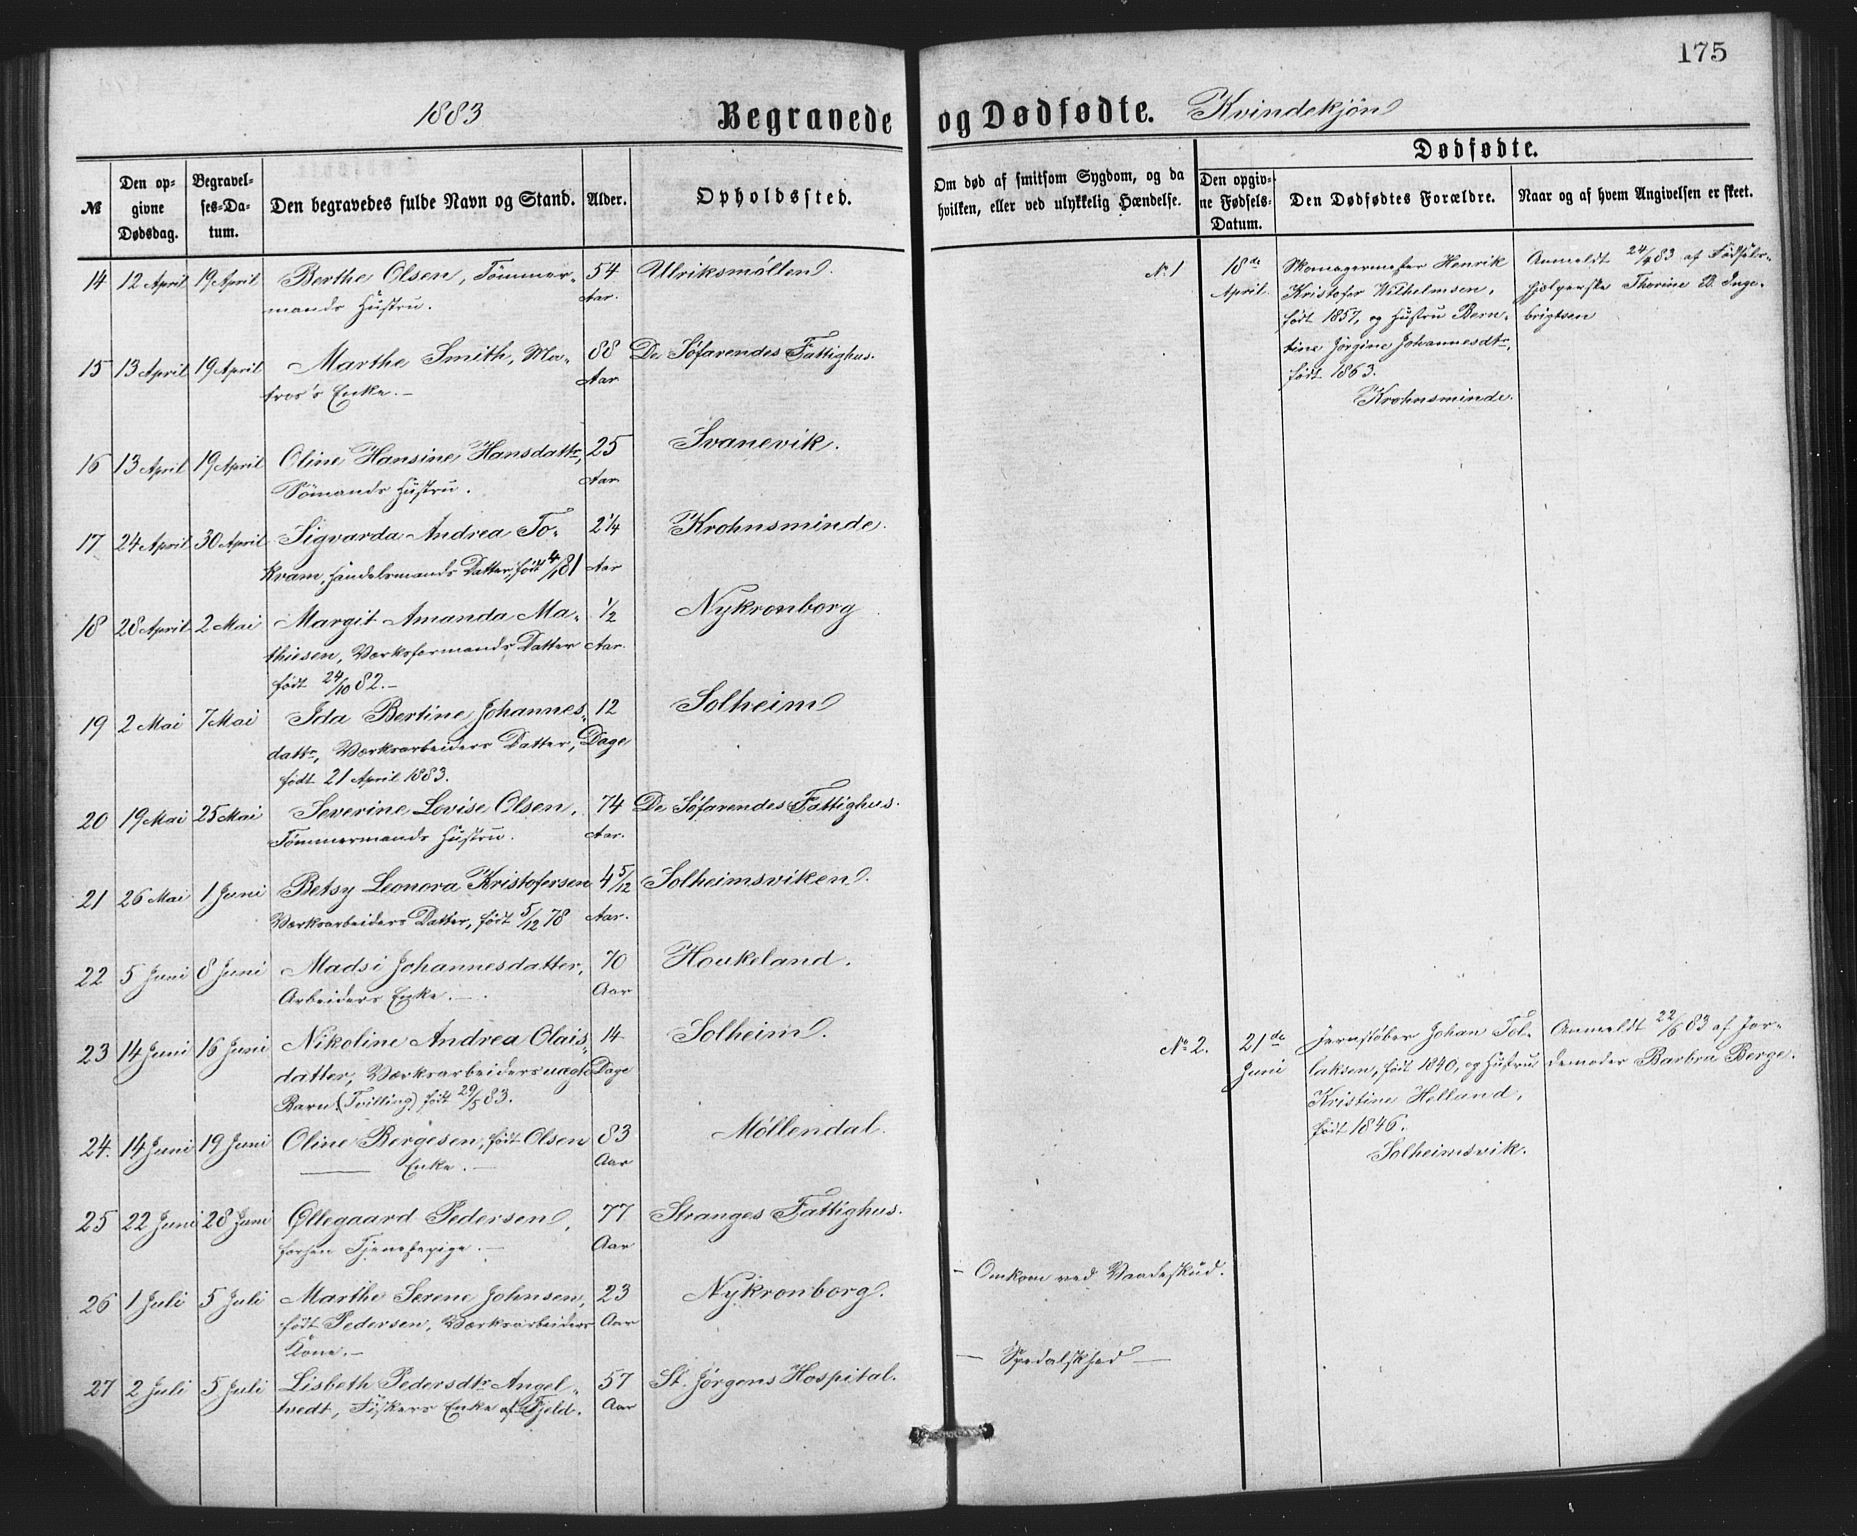 175
1883 Begravede og Dødfødte. Kvindekjøn
№
Den opgivne Dødsdag.
Begravelses-Datum.
Den begravedes fulde Navn og Stand.
Alder.
Opholdssted.
Om død af smitsom Sygdom, og da hvilken, eller ved ulykkelig Hændelse.
Dødfødte.
Den opgivne Fødsels-Datum.
Den Dødfødtes Forældre.
Naar og af hvem Angivelsen er skeet.
14 12 April 19 April Berthe Olsen, Tømmer- 54 Ulriksmølten.
mands Hustru. Aar.
15 13 April 19 April Marthe Smith, Ma- 88 De Söfarendes Fattighus.
tros's Enke.— Aar
16 13 April 19 April Oline Hansine Hansdattr, 25 Svanevik.
Sömands Hustru. Aar
17 24 April 30 April Sigvarda Andrea To- 2¼ Krohnsminde.
kvam, Handelsmands Datter, födt 4/1 81 Aar
18 28 April 2 Mai Margit Amanda Ma- ½ Nykronborg
thiesen, Værksformands Datter Aar.
födt 24/10 82.—
19 2 Mai 7 Mai Ida Bertine Johannes- 12 Solheim
dattr, Værksarbeiders Datter, Dage
födt 21 April 1883.
20 19 Mai 25 Mai Severine Lovise Olsen, 74 De Söfarendes Fattighus.
Tömmermands Hustru. Aar.
21 26 Mai 1 Juni Betsy Leonora Kristofersen 4 5/12 Solheimsviken.
Værksarbeiders Datter, födt 5/12 78 Aar.
22 5 Juni 8 Juni Madsi Johannesdatter, 70 Houkeland.
Arbeiders Enke.— Aar
23 14 Juni 16 Juni Nikoline Andrea Olais- 14 Solheim.
datter, Værksarbeiders uægte Dage
Barn (Tvilling) födt 29/5 83.
24. 14 Juni 19 Juni Oline Bergesen, födt Olsen 83 Möllendal.
Enke.— Aar
25 22 Juni 28 Juni Øllegaard Pedersen, 77 Stranges Fattighus.
forhen Tjenestepige.— Aar
26 1 Juli 5 Juli Marthe Serene Johnsen, 23 Nykronborg. — Omkom ved Vaadeskud.
födt Pedersen, Værksarbeiders Aar
Kone.—
27 2 Juli 5 Juli Lisbeth Pedersdtr Angel- 57 St. Jörgens Hospital. — Spedalskhed —
tvedt, Fiskers Enke af Fjeld. Aar
No 1 18de April.
Skomagermester Henrik
Kristofer Wilhelmsen,
födt 1857, og Hustru Bern-
tine Jörgine Johannesdtr,
födt 1863.
Krohnsminde.
Anmeldt 24/4 83 af Födsels-
hjælperske Thorine B. Inge-
brigtsen
No 2. 21de Juni
Jernstöber Johan Tol-
laksen, födt 1840, og Hustru
Kristine Helland,
födt 1846.
Solheimsvik.
Anmeldt 22/6 83 af Jor-
demoder Barbru Berge.